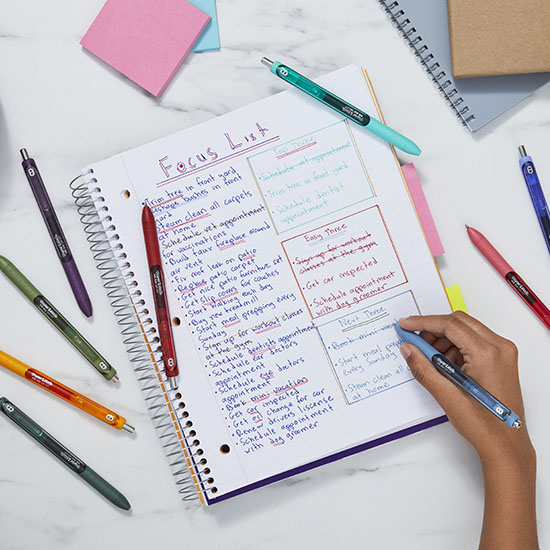 Focus List
Trim tree in front yard
bushes in front
yard
Steam clean all carpets
at home
Schedule vet appointment
for vaccinations
fireplace around
air vent
Fix roof leak on patio
Replace patio carpet
Get nice patio furniture set
Get slip covers for couches
Start walking each day
Buy new treadmill
Start meal prepping every
Sunday
Sign up for workout classes
at the gym
Schedule dentists appointment
Schedule ear doctors
appointment
Schedule eye doctors
appointment
Book mini vacation
Get car inspected
Get oil change for car
Renew drivers liscense
Schedule appointment
with dog groomer
Top Three
Schedule vet appointment
Trim tree in front yard
Schedule dentist
appointment
Easy Three
Sign up for workout
classes at the gym
Get car inspected
Schedule appointment
with dog groomer
Next Three
Book mini
Start meal
Sunday
Steam clean all
at home